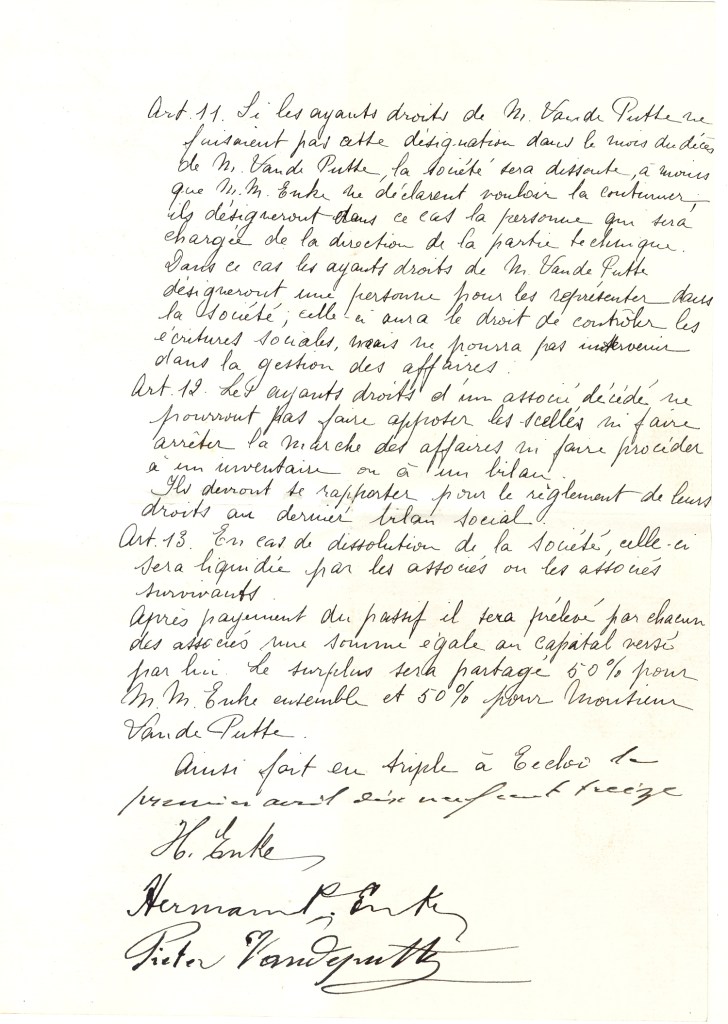 Art. 11. Si les ayants droits de M. Van de Putte ne
faisaient pas cette désignation dans le mois du décès
de M. Van de Putte, la société sera dissoute, à moins
que M.M. Enke ne déclarent vouloir la continuer;
ils désigneront dans ce cas la personne qui sera
chargée de la direction de la partie technique.
Dans ce cas les ayants droits de M. Van de Putte
désigneront une personne pour les représenter dans
la société; celle-ci aura le droit de contrôler les
écritures sociales, mais ne pourra pas intervenir
dans la gestion des affaires.
Art. 12. Les ayants droits d'un associé décédé ne
pourront pas faire apposer les scellés ni faire
arrêter la marche des affaires ni faire procéder
à un inventaire ou à un bilan.
Ils devront se rapporter pour le règlement de leurs
droits au dernier bilan social.
Art. 13. En cas de dissolution de la société, celle-ci
sera liquidée par les associés ou les associés
survivants.
Après payement du passif il sera prélevé par chacun
des associés une somme égale au capital versé
par lui. Le surplus sera partagé 50% pour
M.M. Enke ensemble et 50% pour Monsieur
Van de Putte.
Ainsi fait en triple à Eecloo le
premier avril dix neuf cent treize
H. Enke
Hermann Enke
Pieter Vandeputte